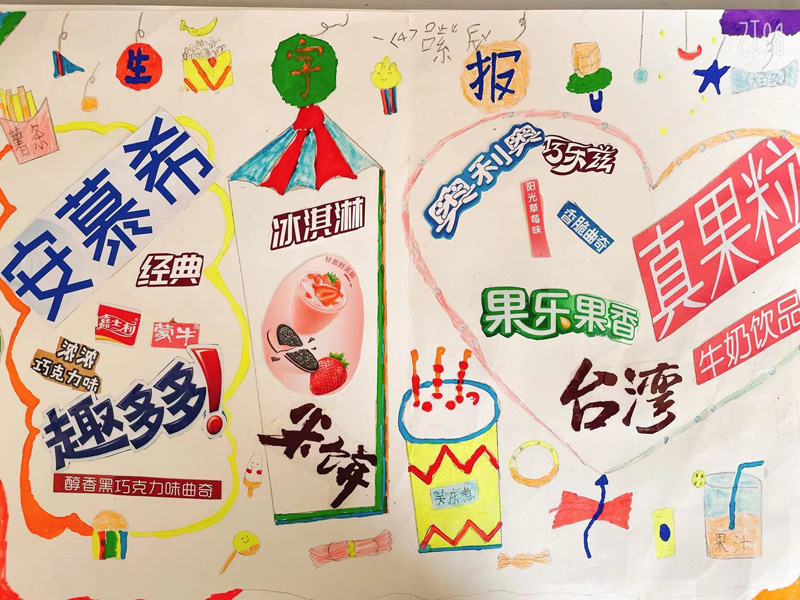 生
字
报
薯条
安慕希
经典
嘉士利
蒙牛
浓浓
巧克力味
趣多多!
醇香黑巧克力味曲奇
冰淇淋
夹心
饼
奥利奥
巧乐兹
阳光草莓味
香脆曲奇
真果粒
牛奶饮品
果乐果香
台湾
关东煮
果汁